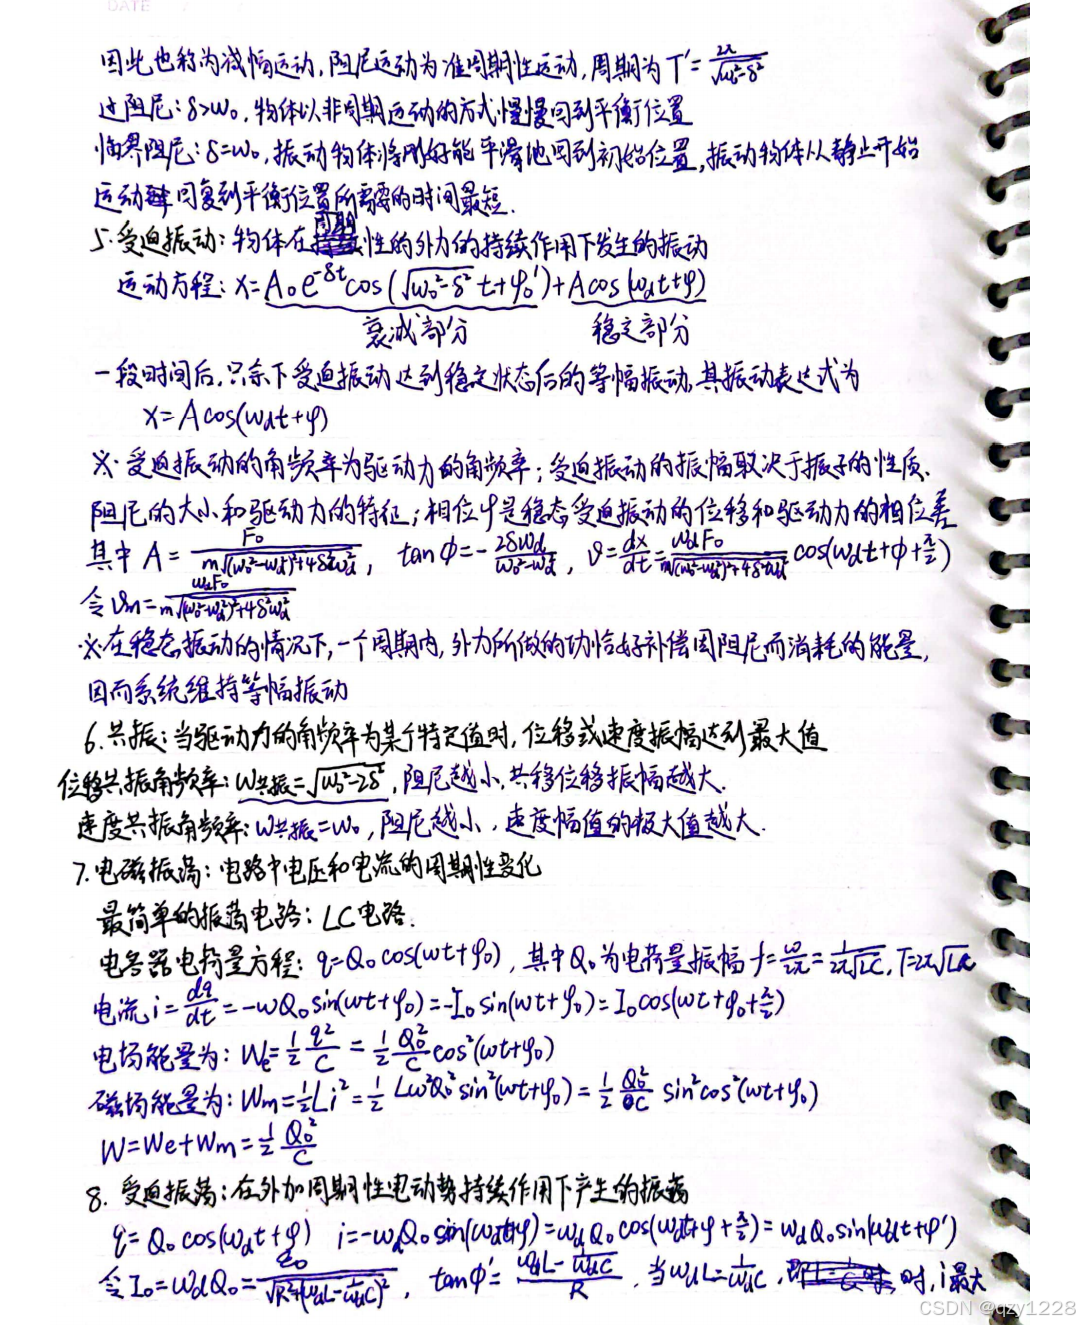 DATE
因此也称为减幅运动,阻尼运动为准周期性运动,周期为T'=2π/√(ω₀²-δ²)
过阻尼:δ>ω₀,物体以非周期运动的方式慢慢回到平衡位置
临界阻尼:δ=ω₀,振动物体将刚好能平滑地回到初始位置,振动物体从静止开始
运动回复到平衡位置所需要的时间最短.
5.受迫振动:物体在周期性的外力的持续作用下发生的振动
运动方程:x=A₀e^(-δt)cos(√(ω₀²-δ²)t+φ₀')+Acos(ω_d t+φ)
衰减部分 稳定部分
一段时间后,只余下受迫振动达到稳定状态后的等幅振动,其振动表达式为
x=Acos(ω_d t+φ)
※.受迫振动的角频率为驱动力的角频率;受迫振动的振幅取决于振子的性质、
阻尼的大小和驱动力的特征;相位φ是稳态受迫振动的位移和驱动力的相位差
其中A=F₀/(m√((ω₀²-ω_d²)²+4δ²ω_d²)), tanϕ=-2δω_d/(ω₀²-ω_d²), v=dx/dt=ω_dF₀/(m√((ω₀²-ω_d²)²+4δ²ω_d²))cos(ω_d t+ϕ+π/2)
令v_m=ω_dF₀/(m√((ω₀²-ω_d²)²+4δ²ω_d²))
※在稳态振动的情况下,一个周期内,外力所做的功恰好补偿因阻尼而消耗的能量,
因而系统维持等幅振动
6.共振:当驱动力的角频率为某个特定值时,位移或速度振幅达到最大值
位移共振角频率:ω共振=√(ω₀²-2δ²),阻尼越小,共移位移振幅越大.
速度共振角频率:ω共振=ω₀,阻尼越小,速度幅值的极大值越大.
7.电磁振荡:电路中电压和电流的周期性变化
最简单的振荡电路:LC电路.
电容器电荷量方程:q=Q₀cos(ωt+φ₀),其中Q₀为电荷量振幅 f=ω/2π=1/(2π√LC),T=2π√LC
电流i=dq/dt=-ωQ₀sin(ωt+φ₀)=-I₀sin(ωt+φ₀)=I₀cos(ωt+φ₀+π/2)
电场能量为:We=1/2 q²/C=1/2 Q₀²/C cos²(ωt+φ₀)
磁场能量为:Wm=1/2Li²=1/2 Lω²Q₀²sin²(ωt+φ₀)=1/2 Q₀²/C sin²cos²(ωt+φ₀)
W=We+Wm=1/2 Q₀²/C
8.受迫振荡:在外加周期性电动势持续作用下产生的振荡
q=Q₀cos(ω_d t+φ) i=-ω_dQ₀sin(ω_d t+φ)=ω_dQ₀cos(ω_d t+φ+π/2)=ω_dQ₀sin(ω_d t+φ')
令I₀=ω_dQ₀=ε₀/√(R²+(ω_dL-1/(ω_dC))²), tanϕ'=(ω_dL-1/(ω_dC))/R,当ω_dL=1/(ω_dC),时,i最大
CSDN @qzy1228